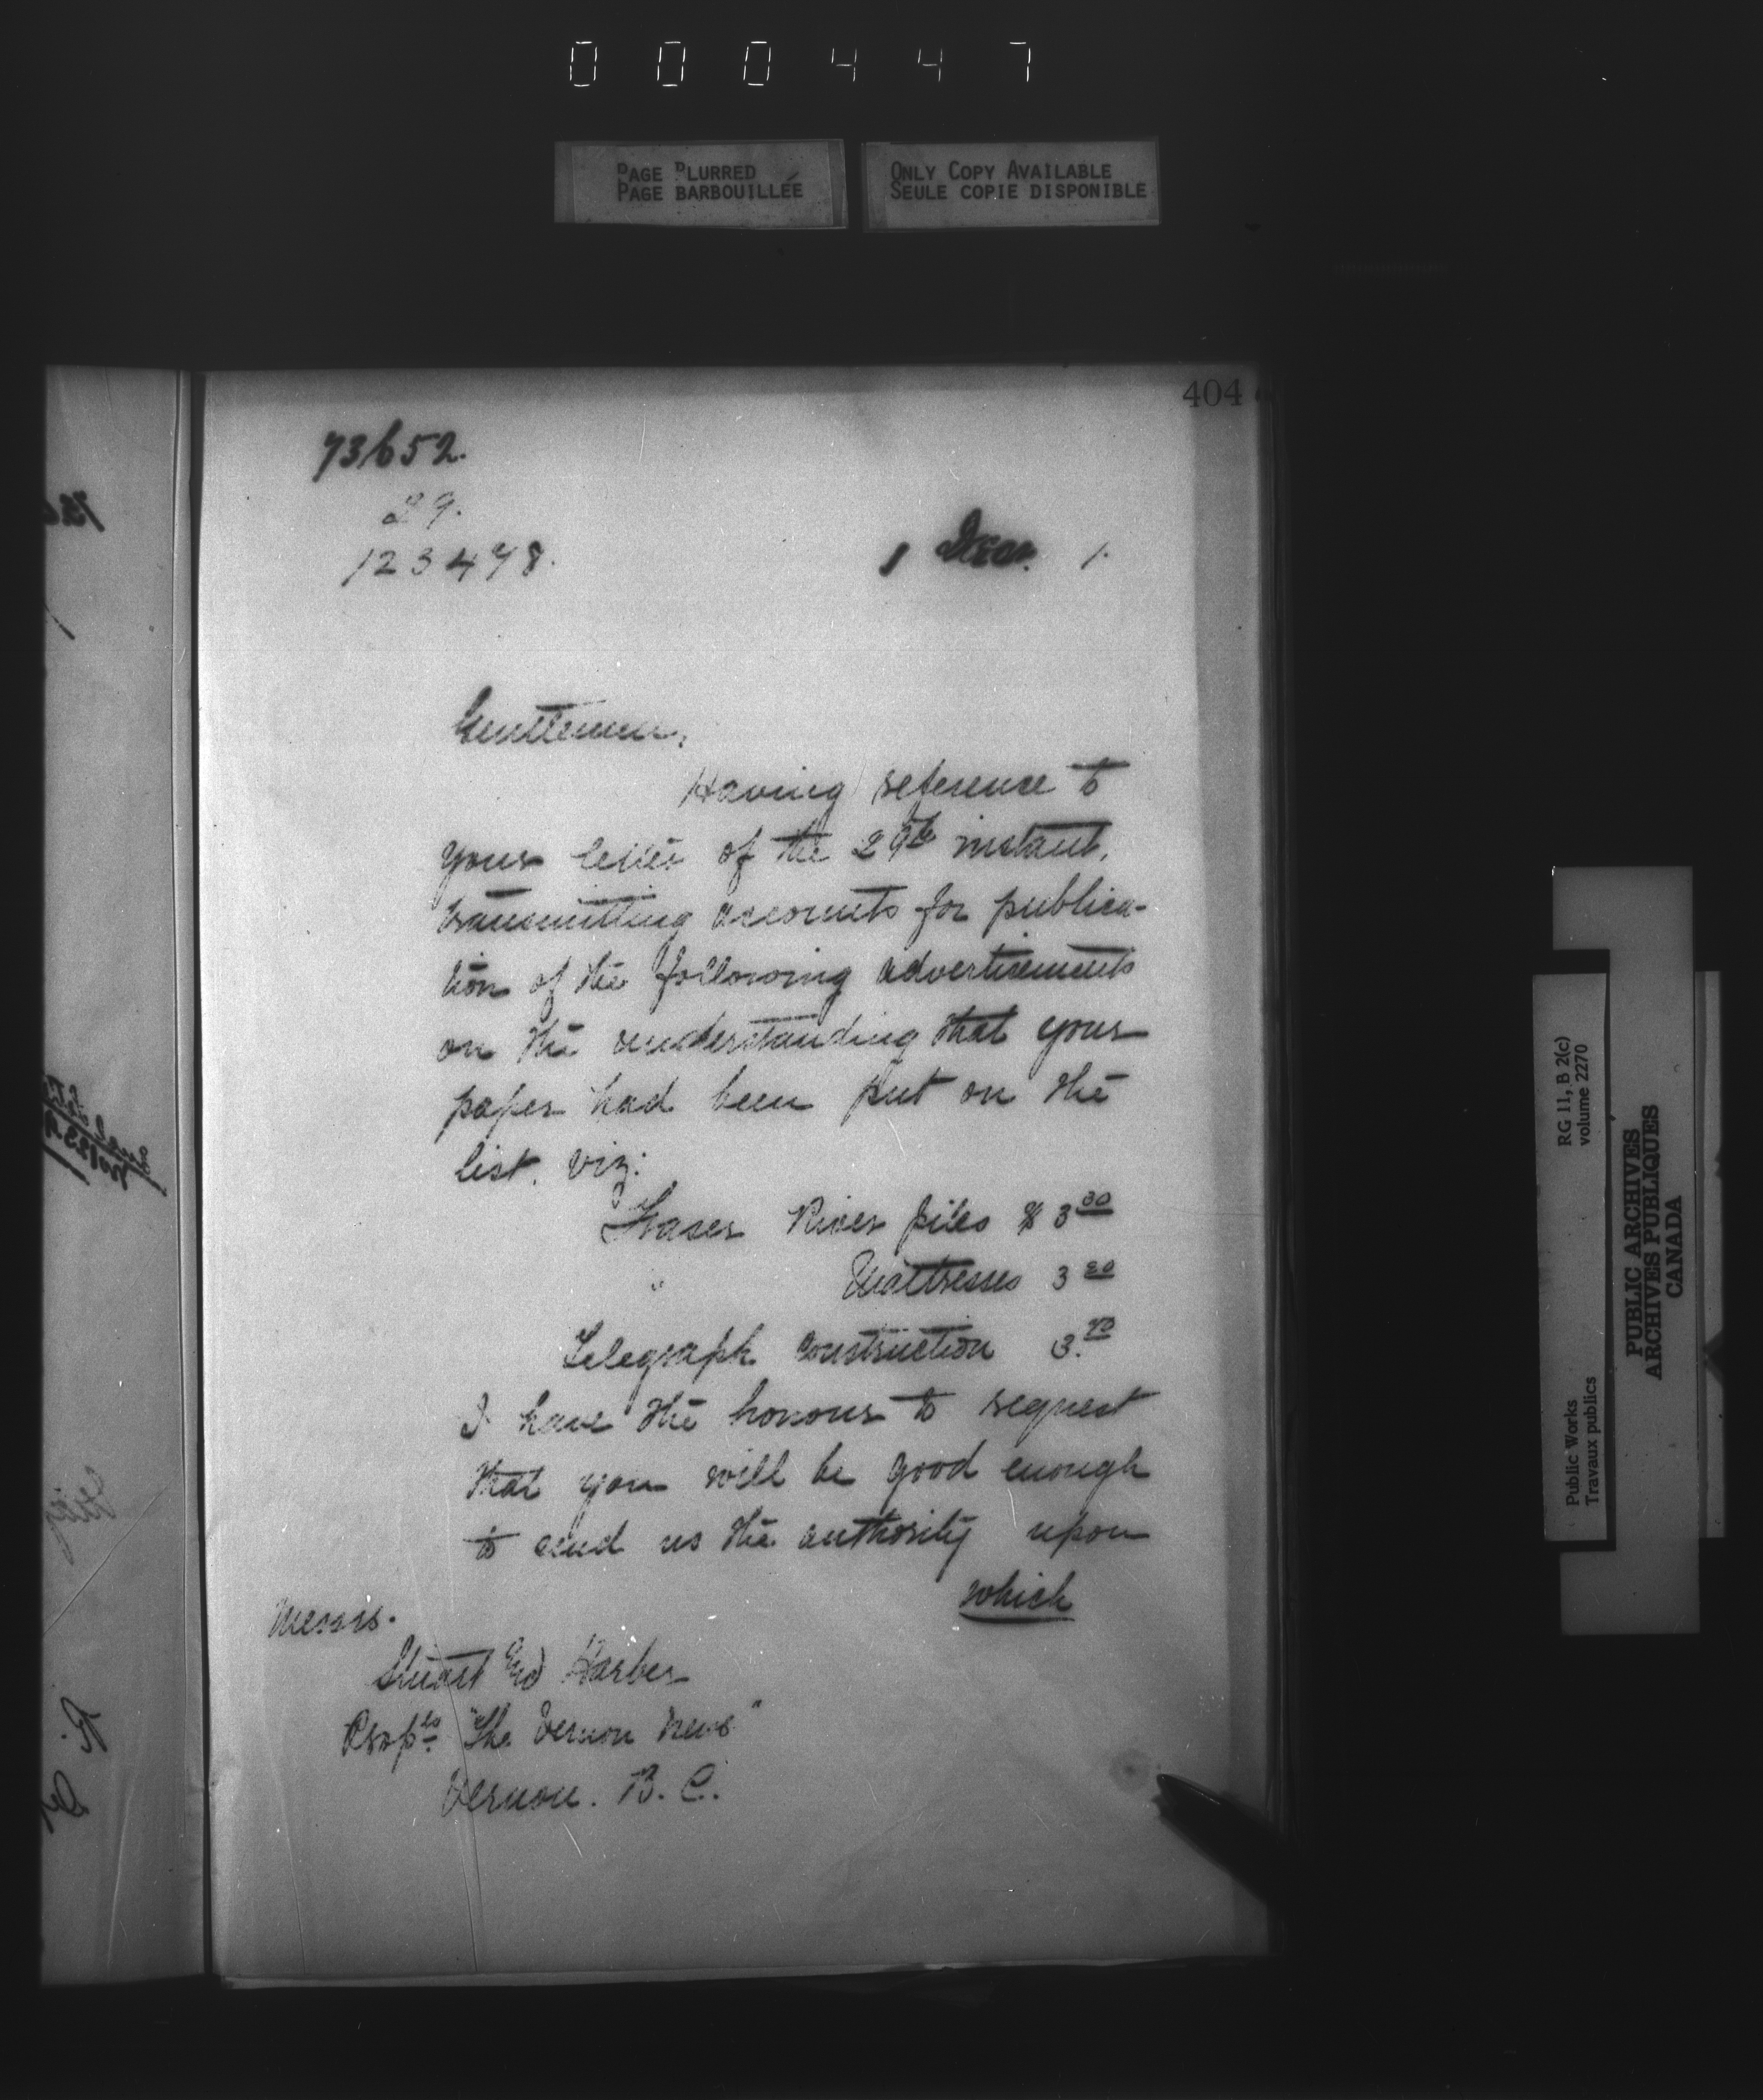 000447
PAGE BLURRED
PAGE BARBOUILLÉE
ONLY COPY AVAILABLE
SEULE COPIE DISPONIBLE
404
73652.
29.
123478.
1 Dec. 1.
Gentlemen,
Having reference to
your letter of the 29th instant,
transmitting accounts for publica-
tion of the following advertisements
on the understanding that your
paper had been put on the
list. viz:
Fraser River piles $ 3 30
" Mattresses 3 30
Telegraph construction 3. 40
I have the honour to request
that you will be good enough
to send us the authority upon
which
Messrs.
Stuart Harber
Proprs "The Vernon News"
Vernon. B. C.
RG 11, B 2(c)
volume 2270
Public Works
Travaux publics
PUBLIC ARCHIVES
ARCHIVES PUBLIQUES
CANADA